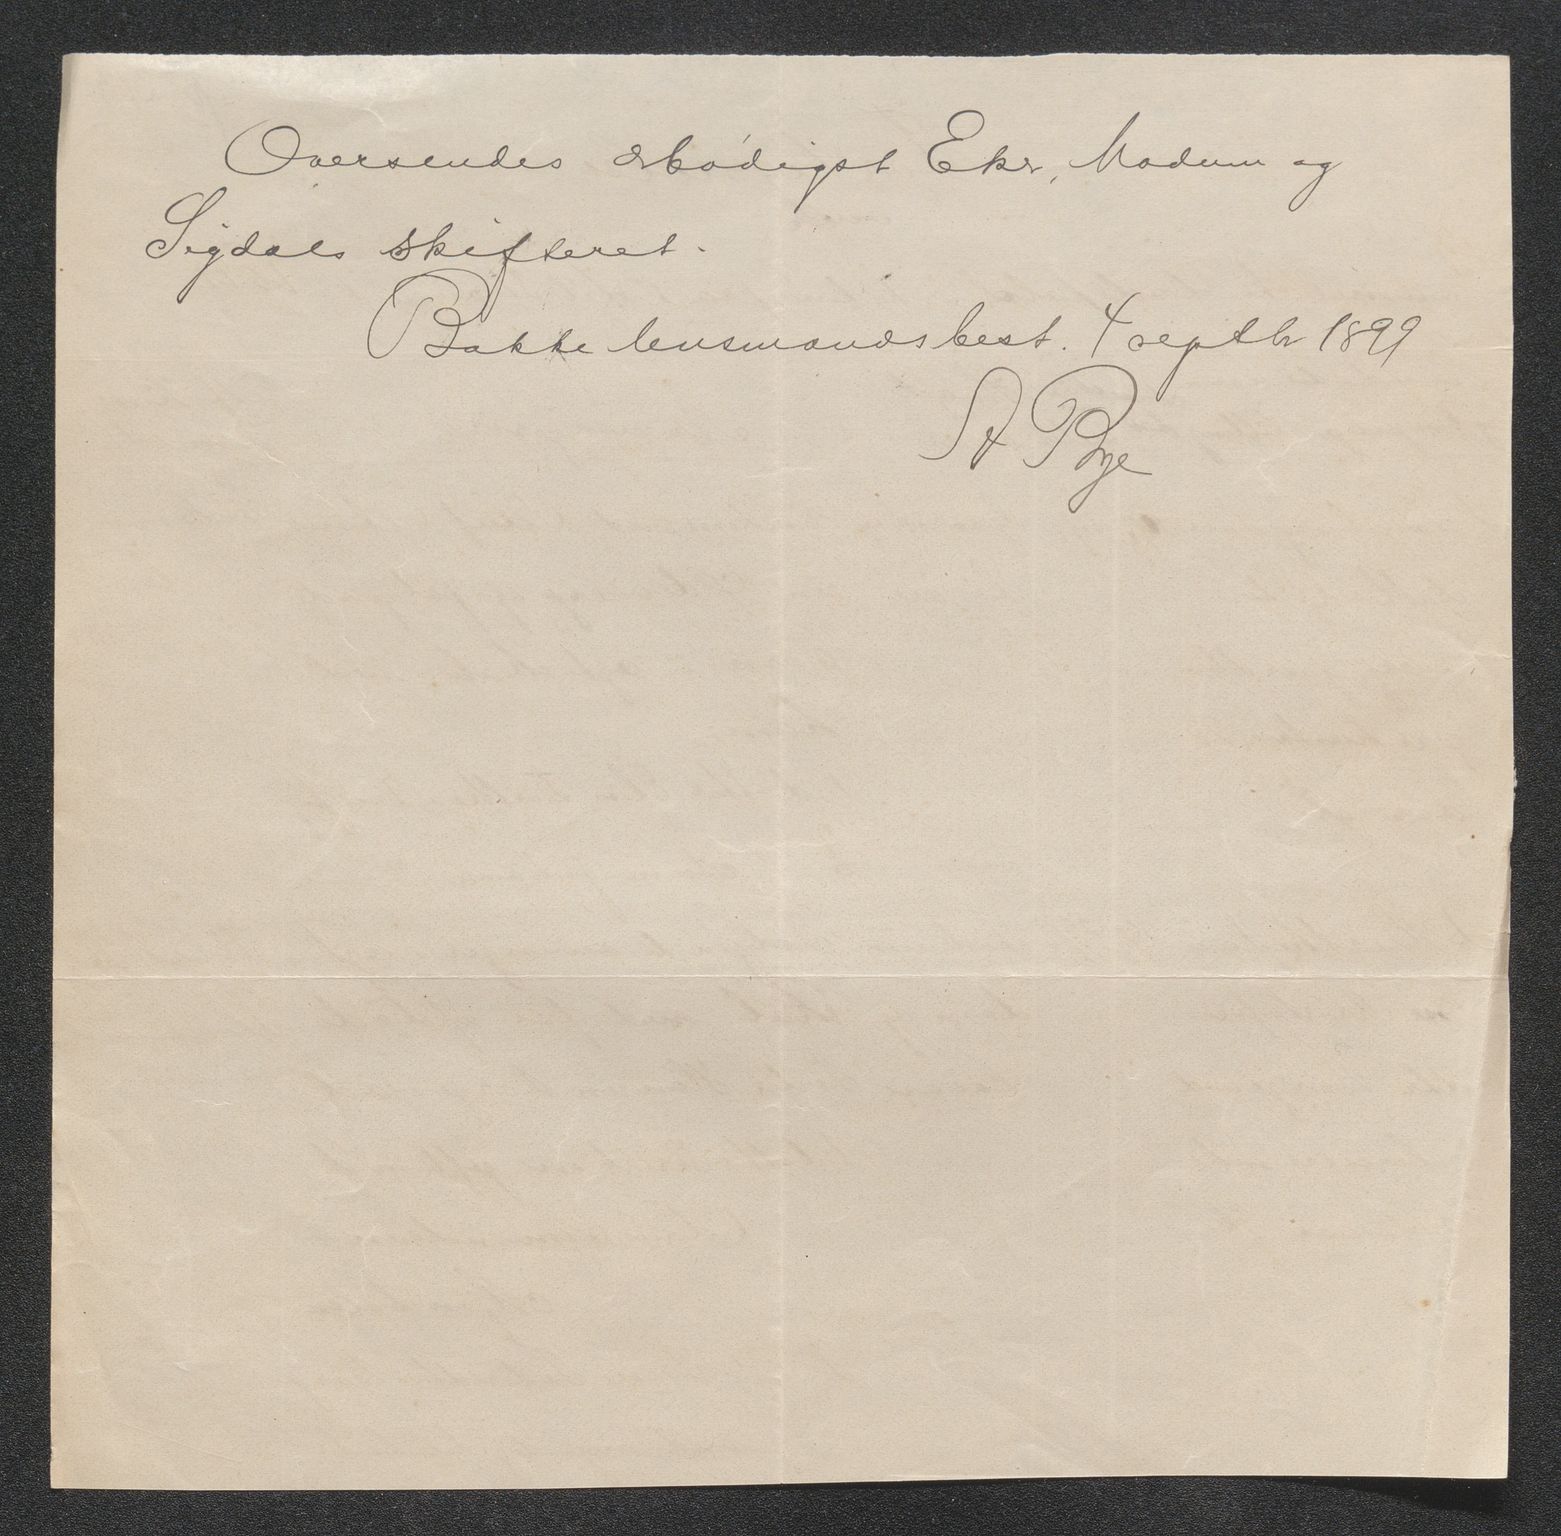 Oversendes ærbødigst Eker, Modum og
Sigdals skifteret.
Bakke lensmandsbest. 4 septbr 1899
A Bye